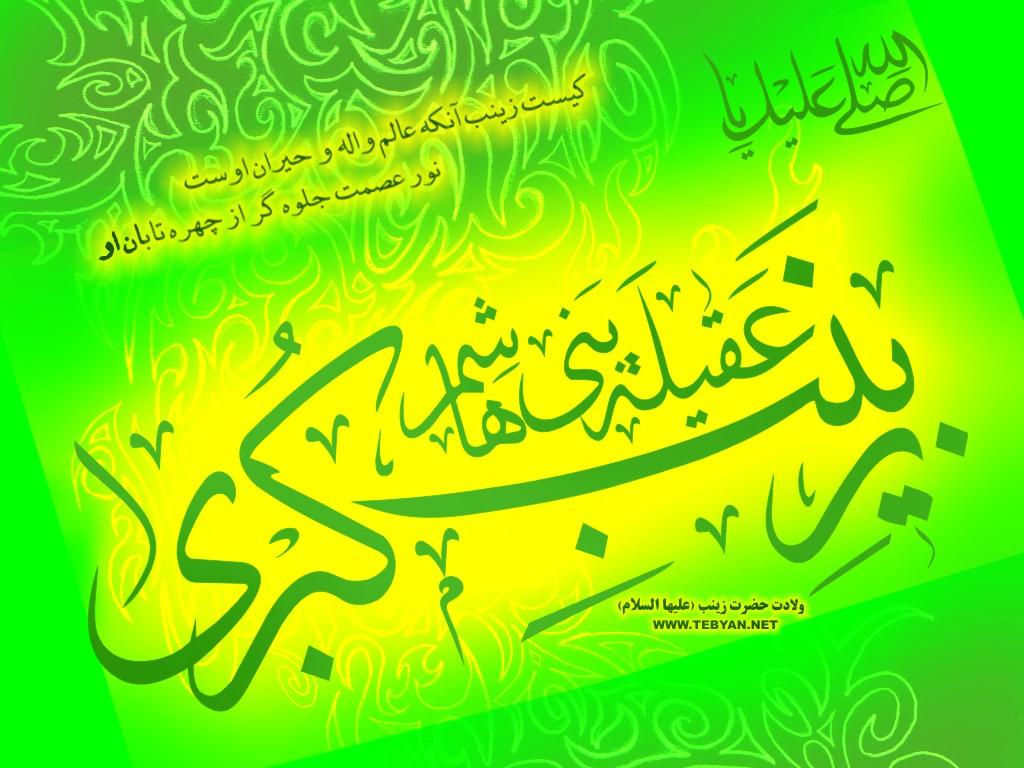 صلی الله علیک یا
کیست زینب آنکه عالم واله و حیران اوست
نور عصمت جلوه گر از چهره تابان او
عَقیلَة بَنی هاشِم
زینب کبری
ولادت حضرت زینب (علیها السلام)
WWW.TEBYAN.NET